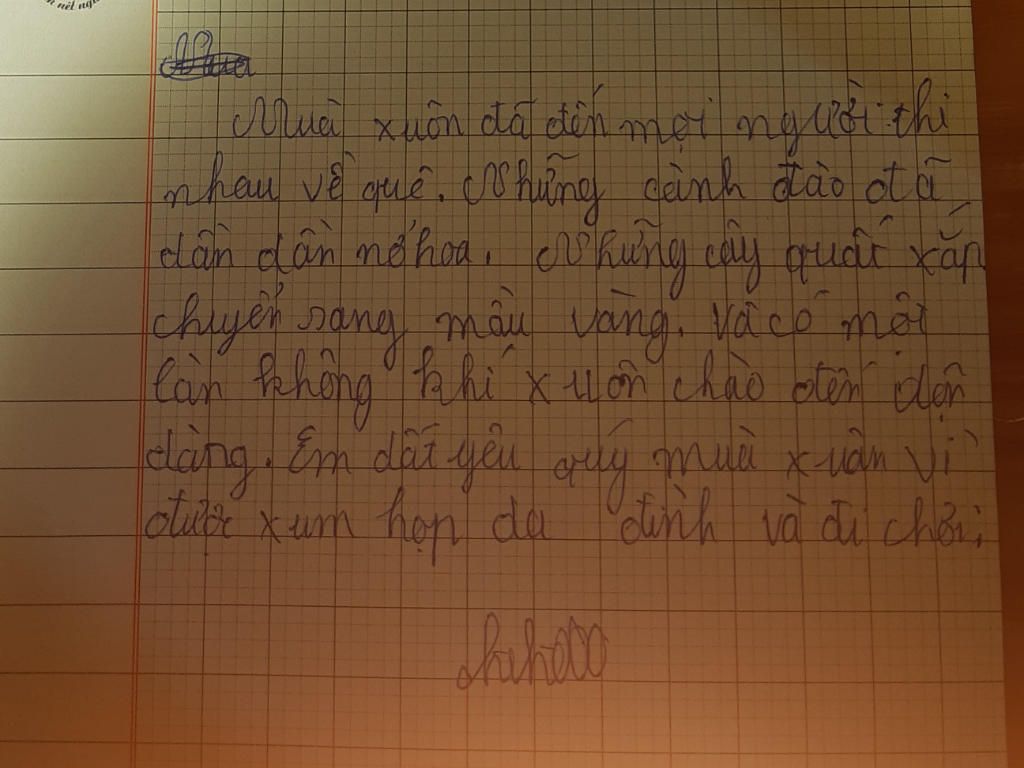 nét ngư
Mùa xuân đã đến mọi người thi
nhau về quê. Những cành đào đã
dần dần nở hoa. Những cây quất xắp
chuyển sang mầu vàng. Và có một
làn không khí xuân chào đến dộn
dàng. Em dất yêu quý muà xuân vì
được xum họp da đình và đi chơi.